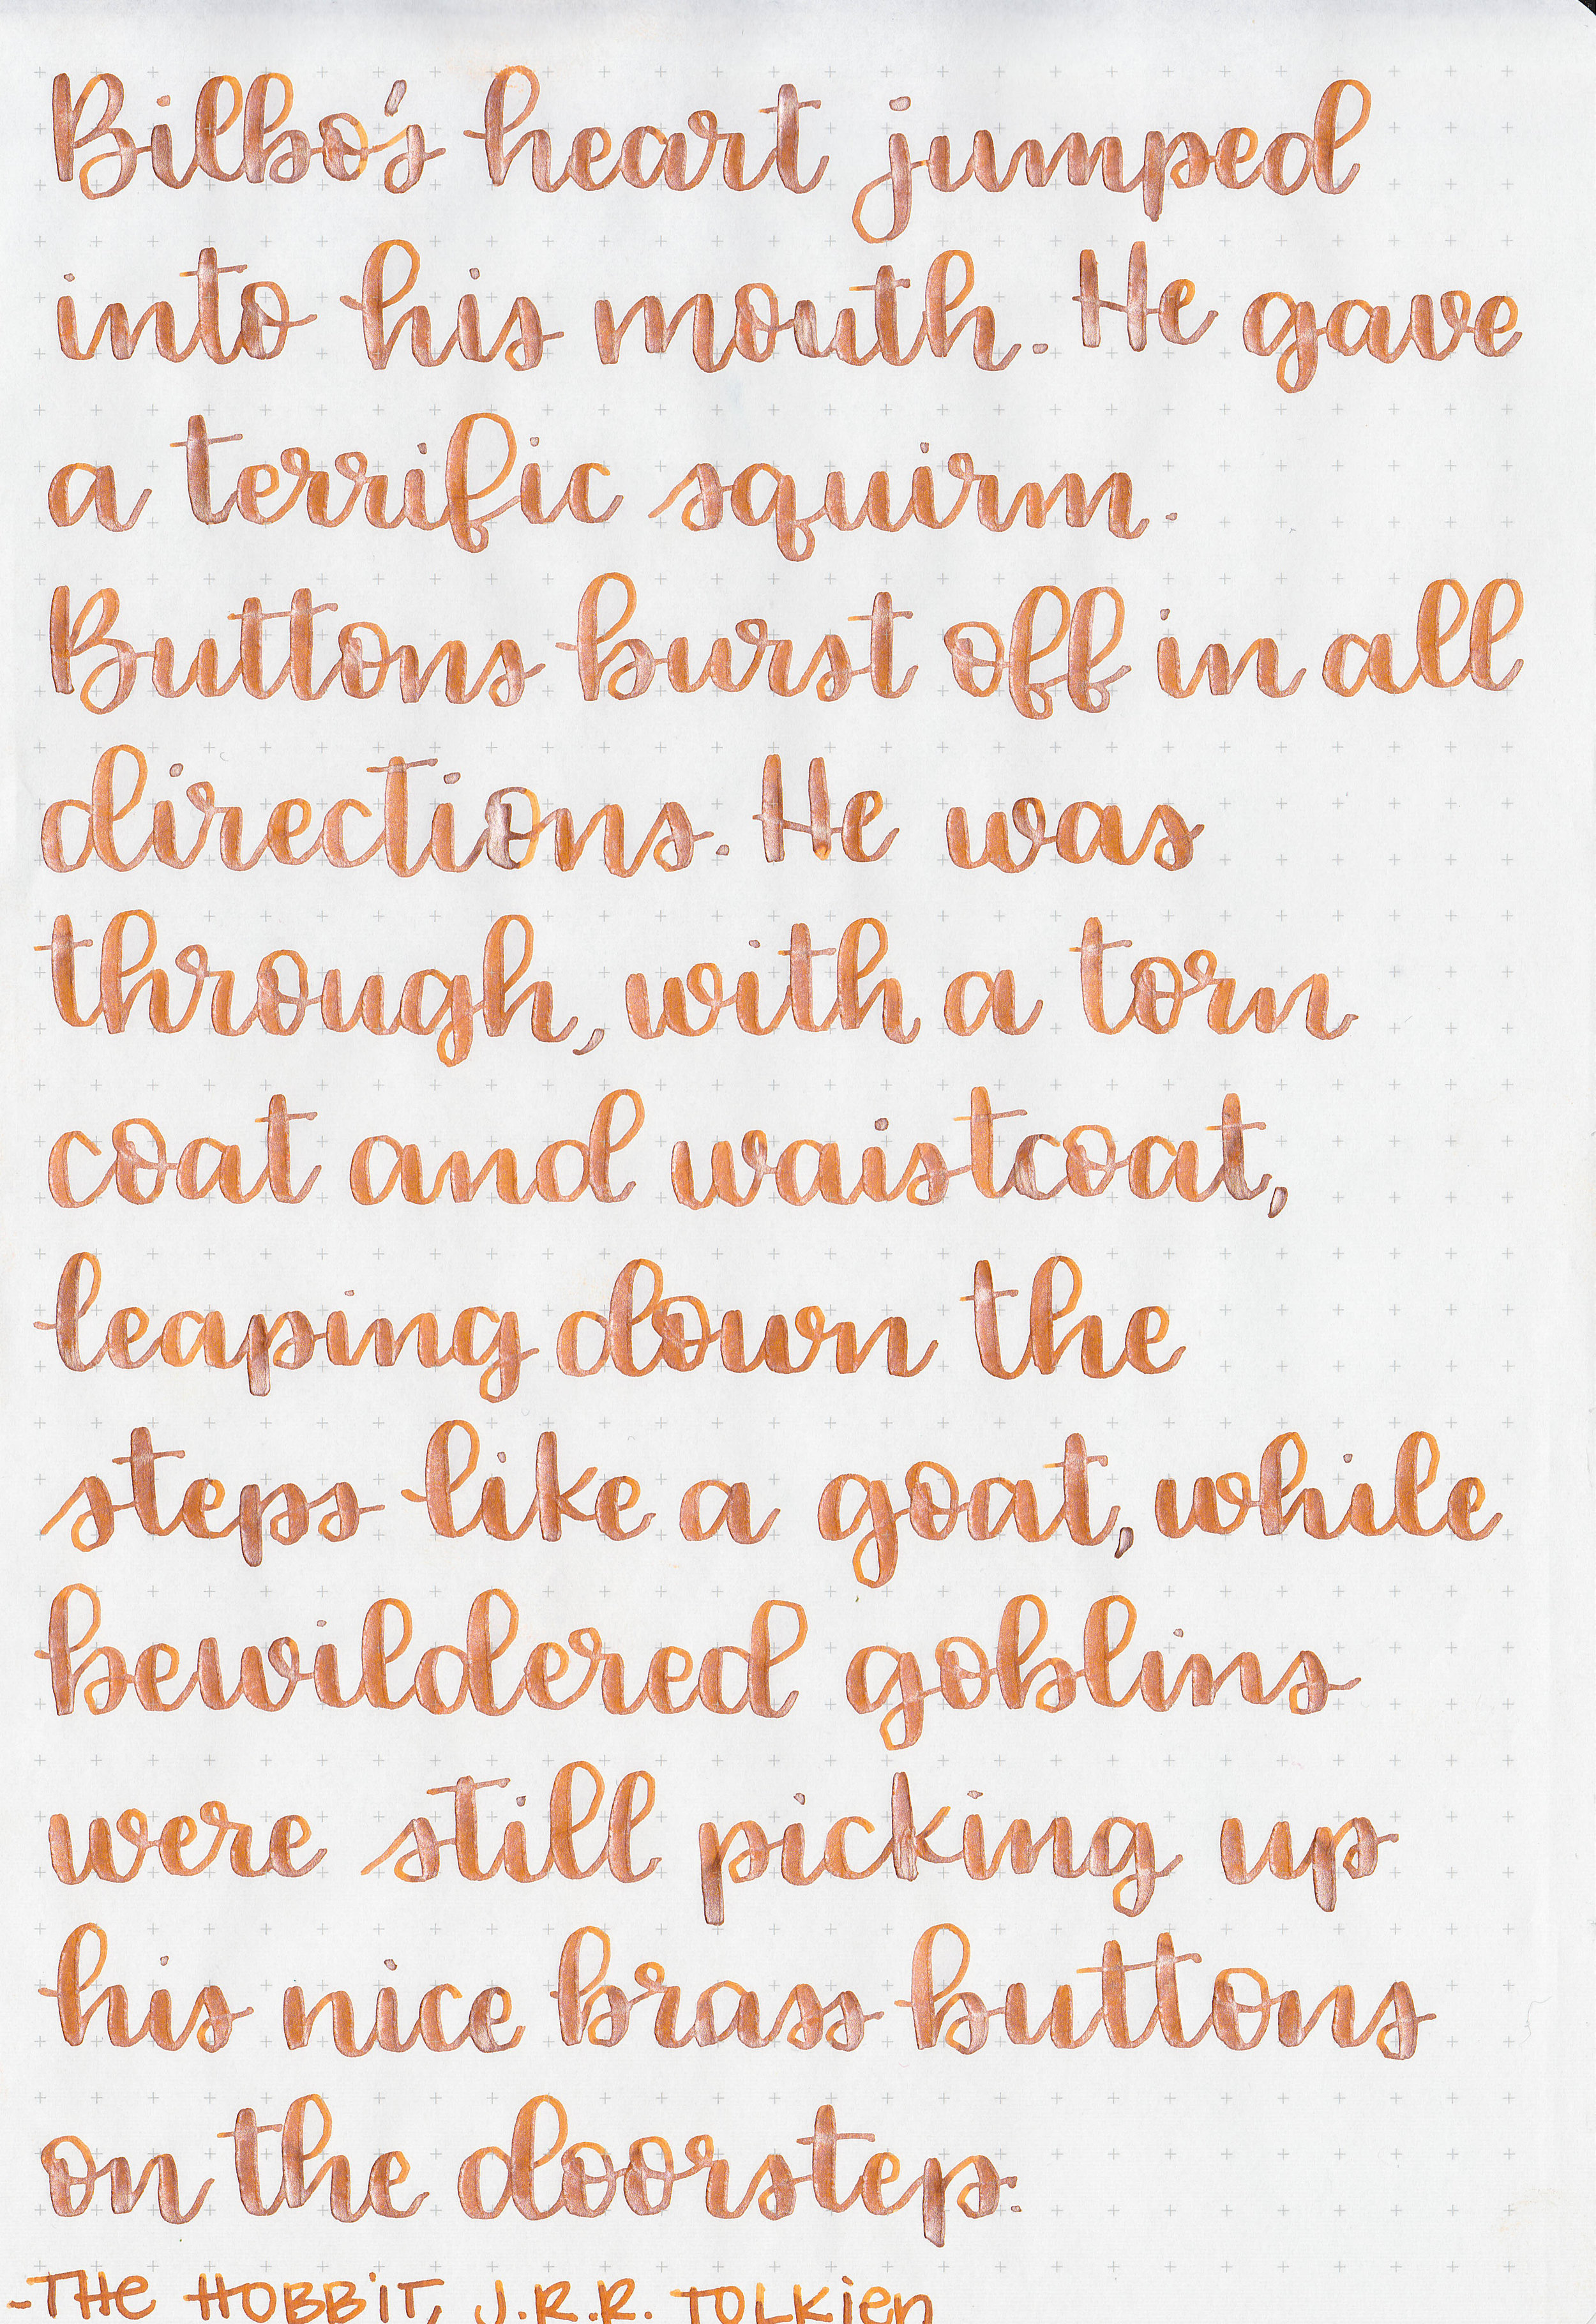 Bilbo's heart jumped
into his mouth. He gave
a terrific squirm.
Buttons burst off in all
directions. He was
through, with a torn
coat and waistcoat,
leaping down the
steps like a goat, while
bewildered goblins
were still picking up
his nice brass buttons
on the doorstep.
-THE HOBBIT, J.R.R. TOLKIEN